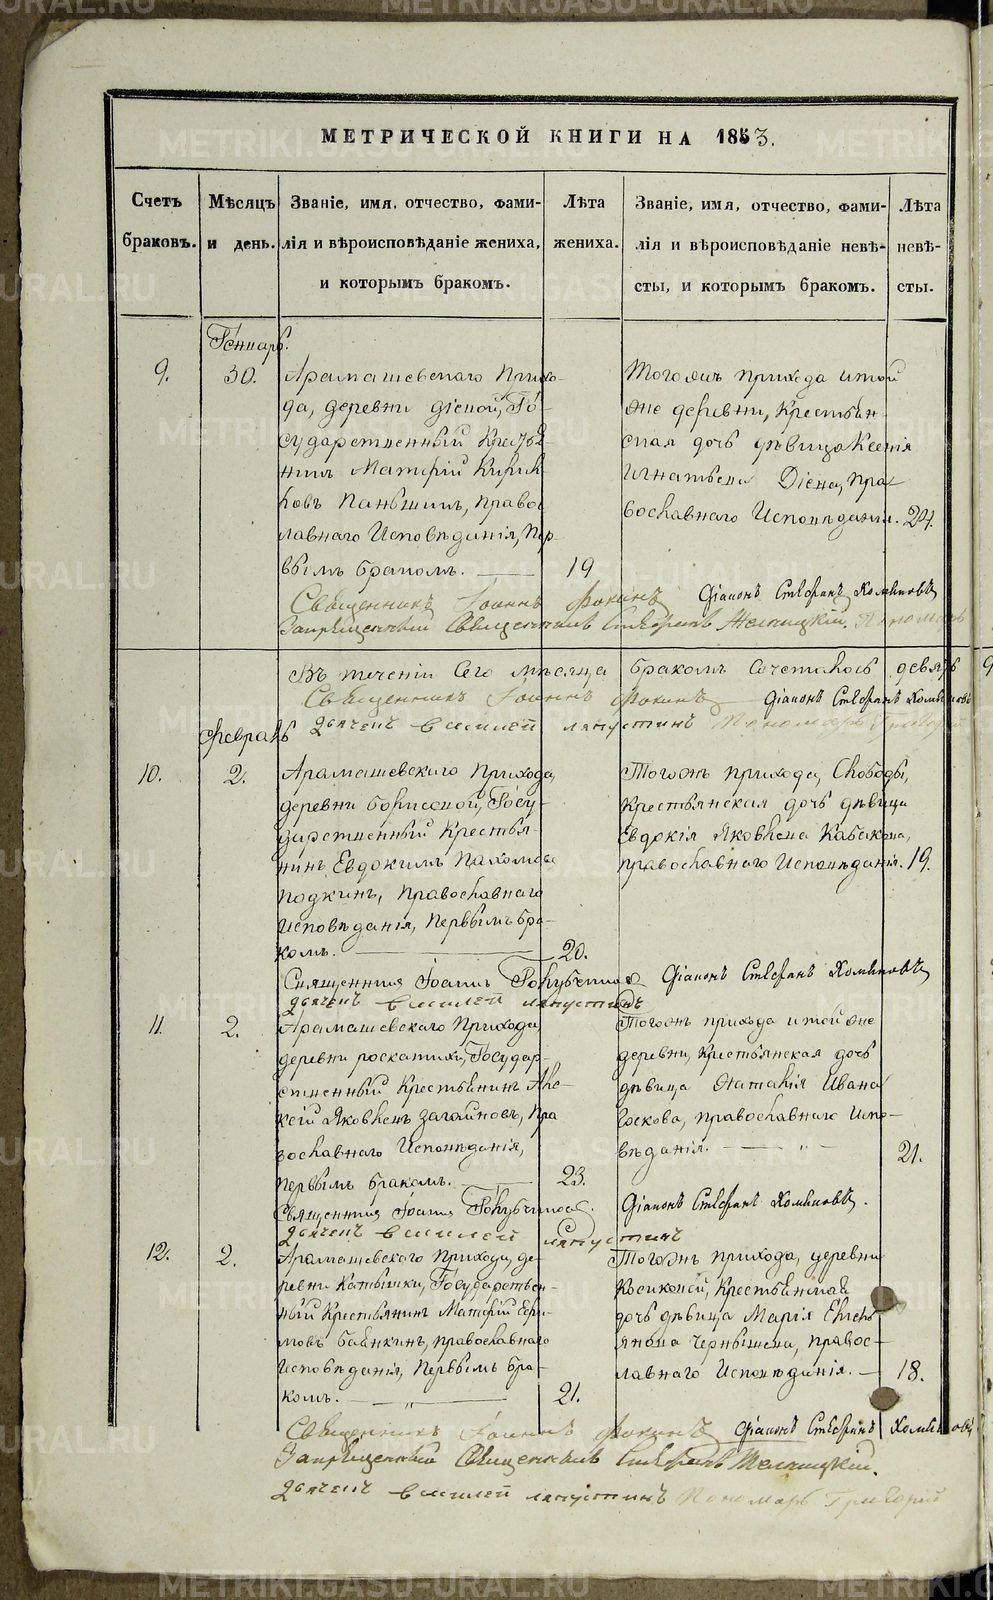 МЕТРИЧЕСКОЙ КНИГИ НА 1853.
Счетъ браковъ.
Мѣсяцъ и день.
Званіе, имя, отчество, фами-
лія и вѣроисповѣданіе жениха,
и которымъ бракомъ.
Лѣта жениха.
Званіе, имя, отчество, фами-
лія и вѣроисповѣданіе невѣ-
сты, и которымъ бракомъ.
Лѣта невѣ-
сты.
9.
30.
Арамашевскаго Прихо-
да, деревни
сударственный Крестья-
Паньшинъ, Право-
лавнаго Исповѣданія, Пер-
вымъ бракомъ.
19
Тогожъ прихода и той
же деревни, Крестьян-
ская дочь дѣвица Ксенія
Игнатьева Діева, Пра-
вославнаго Исповѣданія.
24.
Священникъ Іоаннъ Фокинъ Діаконъ Стефанъ Хомяковъ
Запрещенный Священникъ Стефанъ
Въ теченіи Сего мѣсяца бракомъ Сочеталось девять 9
Священникъ Іоаннъ Фокинъ Діаконъ Стефанъ Хомяковъ
Дьячекъ Василей Ляпустинъ Пономарь Григорій
Февраль
10.
2.
Арамашевскаго Прихода,
деревни Госу-
дарственный Крестья-
нинъ, Евдокимъ Пахомовъ
Православнаго
Исповѣданія, Первымъ бра-
комъ.
20.
Тогожъ прихода, Слободы,
Крестьянская дочь дѣвица
Евдокія Яковлева Кабакова,
православнаго Исповѣданія.
19.
Священникъ Іоаннъ Діаконъ Стефанъ Хомяковъ
Дьячекъ Василей Ляпустинъ
11.
2.
Арамашевскаго Прихода
деревни роскатихи, Государ-
ственный Крестьянинъ Але-
ксій Яковлевъ Загайновъ, Пра
вославнаго Исповѣданія,
Первымъ бракомъ.
23.
Тогожъ прихода и той же
деревни, Крестьянская дочь
дѣвица Наталія Ивана
православнаго Испо-
вѣданія.
21.
Священникъ Іоаннъ Діаконъ Стефанъ Хомяковъ.
Дьячекъ Василей Ляпустинъ
12.
2.
Арамашевскаго Прихода, де-
ревни Катышки, Государствен-
ный Крестьянинъ Матфій Ефи
мовъ Бабинкинъ, православнаго
Исповѣданія, Первымъ бра-
комъ.
21.
Тогожъ прихода, деревни
Крестьянская
дочь дѣвица Марія Емель
янова Чернышева, Правос-
лавнаго Исповѣданія.
18.
Священникъ Іоаннъ Фокинъ Діаконъ Стефанъ Хомяковъ
Запрещенный Священникъ Стефанъ
Дьячекъ Василей Ляпустинъ Пономарь Григорій
METRIKI.GASO-URAL.RU